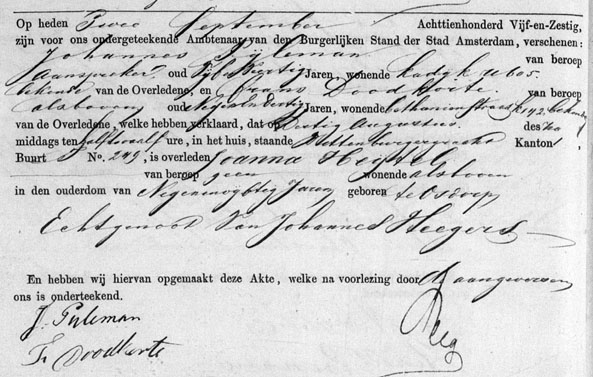 Op heden Twee September Achttienhonderd Vijf-en-Zestig,
zijn voor ons ondergeteekende Ambtenaar van den Burgerlijken Stand der Stad Amsterdam, verschenen:
Johannes Pijleman van beroep
Aanspreker oud Vijf en Veertig Jaren, wonende Kadijk
bekende van de Overledene, en Frans Doodkorte van beroep
alsboven oud Jaren, wonende
van de Overledene, welke hebben verklaard, dat op Dertig Augustus des
middags ten half twaalf ure, in het huis, staande Kanton
Buurt No. 249, is overleden Joanna
van beroep geen wonende alsboven
in den ouderdom van Jaren geboren te Osdorp
Echtgenoot van Johannes Heegers
En hebben wij hiervan opgemaakt deze Akte, welke na voorlezing door
ons is onderteekend.
J. Pijleman
Fr Doodkorte